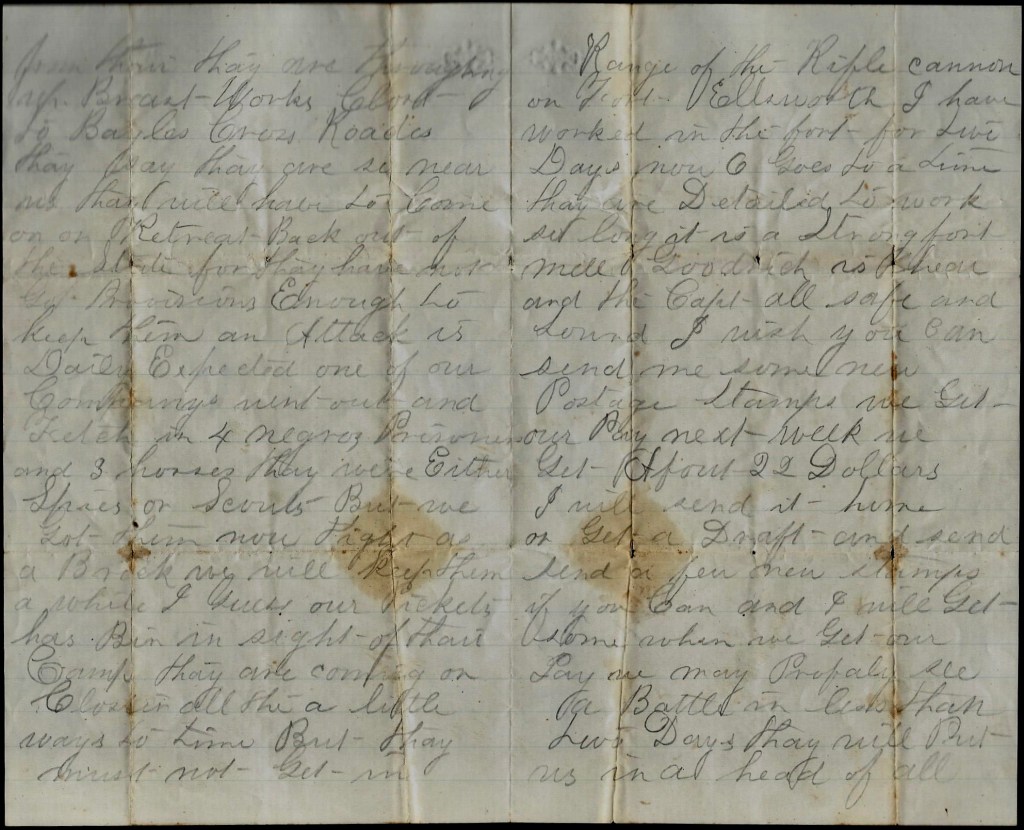 from thair thay are throughing
up Breast Works Clost
to Bayles Cross Roades
thay say thay are so near
us that will have to Come
on or Retreat Back out of
the State for thay have not
Got Provisions Enough to
keep them an Attack is
Daily Expected one of our
Companys went out and
Fetch in 4 negroz Prisoners
and 3 horses thay were Either
Spies or Scouts But we
Got them now tight as
a Brick we will keep them
a while I Gess our Pickets
has Bin in sight of thair
Camp thay are coming on
Closer all the a little
ways to time But thay
must not Get in
Range of the Rifle cannon
on Fort Ellsworth I have
worked in the fort for two
Days now 6 Goes to a time
thay are Detailed to work
so long it is a Strong fort
Mell Goodrich is hear
and the Capt all safe and
Sound I wish you Can
send me some new
Postage Stamps we Get
our Pay next week we
Get About 22 Dollars
I will send it home
or Get a Draft and send
send a few new stamps
if you Can and I will Get
some when we Get our
Pay we may Propaly see
a Battle in less than
two Days thay will Put
us in a head of all